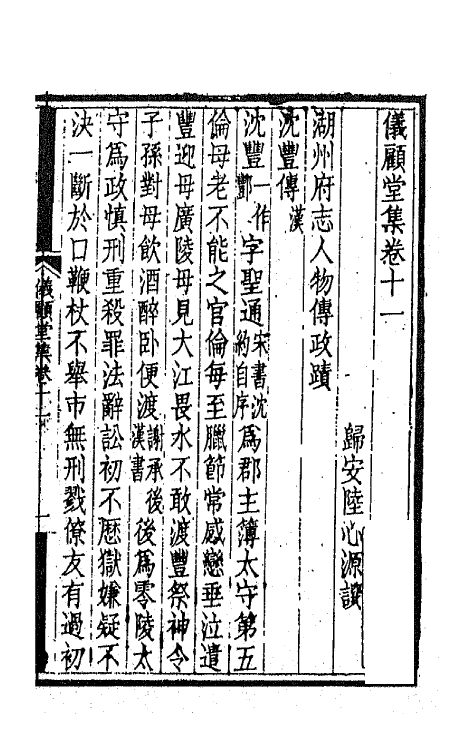 儀顧堂集卷十一
歸安陸心源譔
湖州府志人物傳政蹟
沈豐傳漢
沈豐一作酆字聖通宋書沈約自序爲郡主簿太守第五
倫母老不能之官倫每至臘節常感戀垂泣遣
豐迎母廣陵母見大江畏水不敢渡豐祭神令
子孫對母飲酒醉臥便渡謝承後漢書後爲零陵太
守爲政慎刑重殺罪法辭訟初不歷獄嫌疑不
決一斷於口鞭杖不舉市無刑戮僚友有過初
儀顧堂集卷十一
一